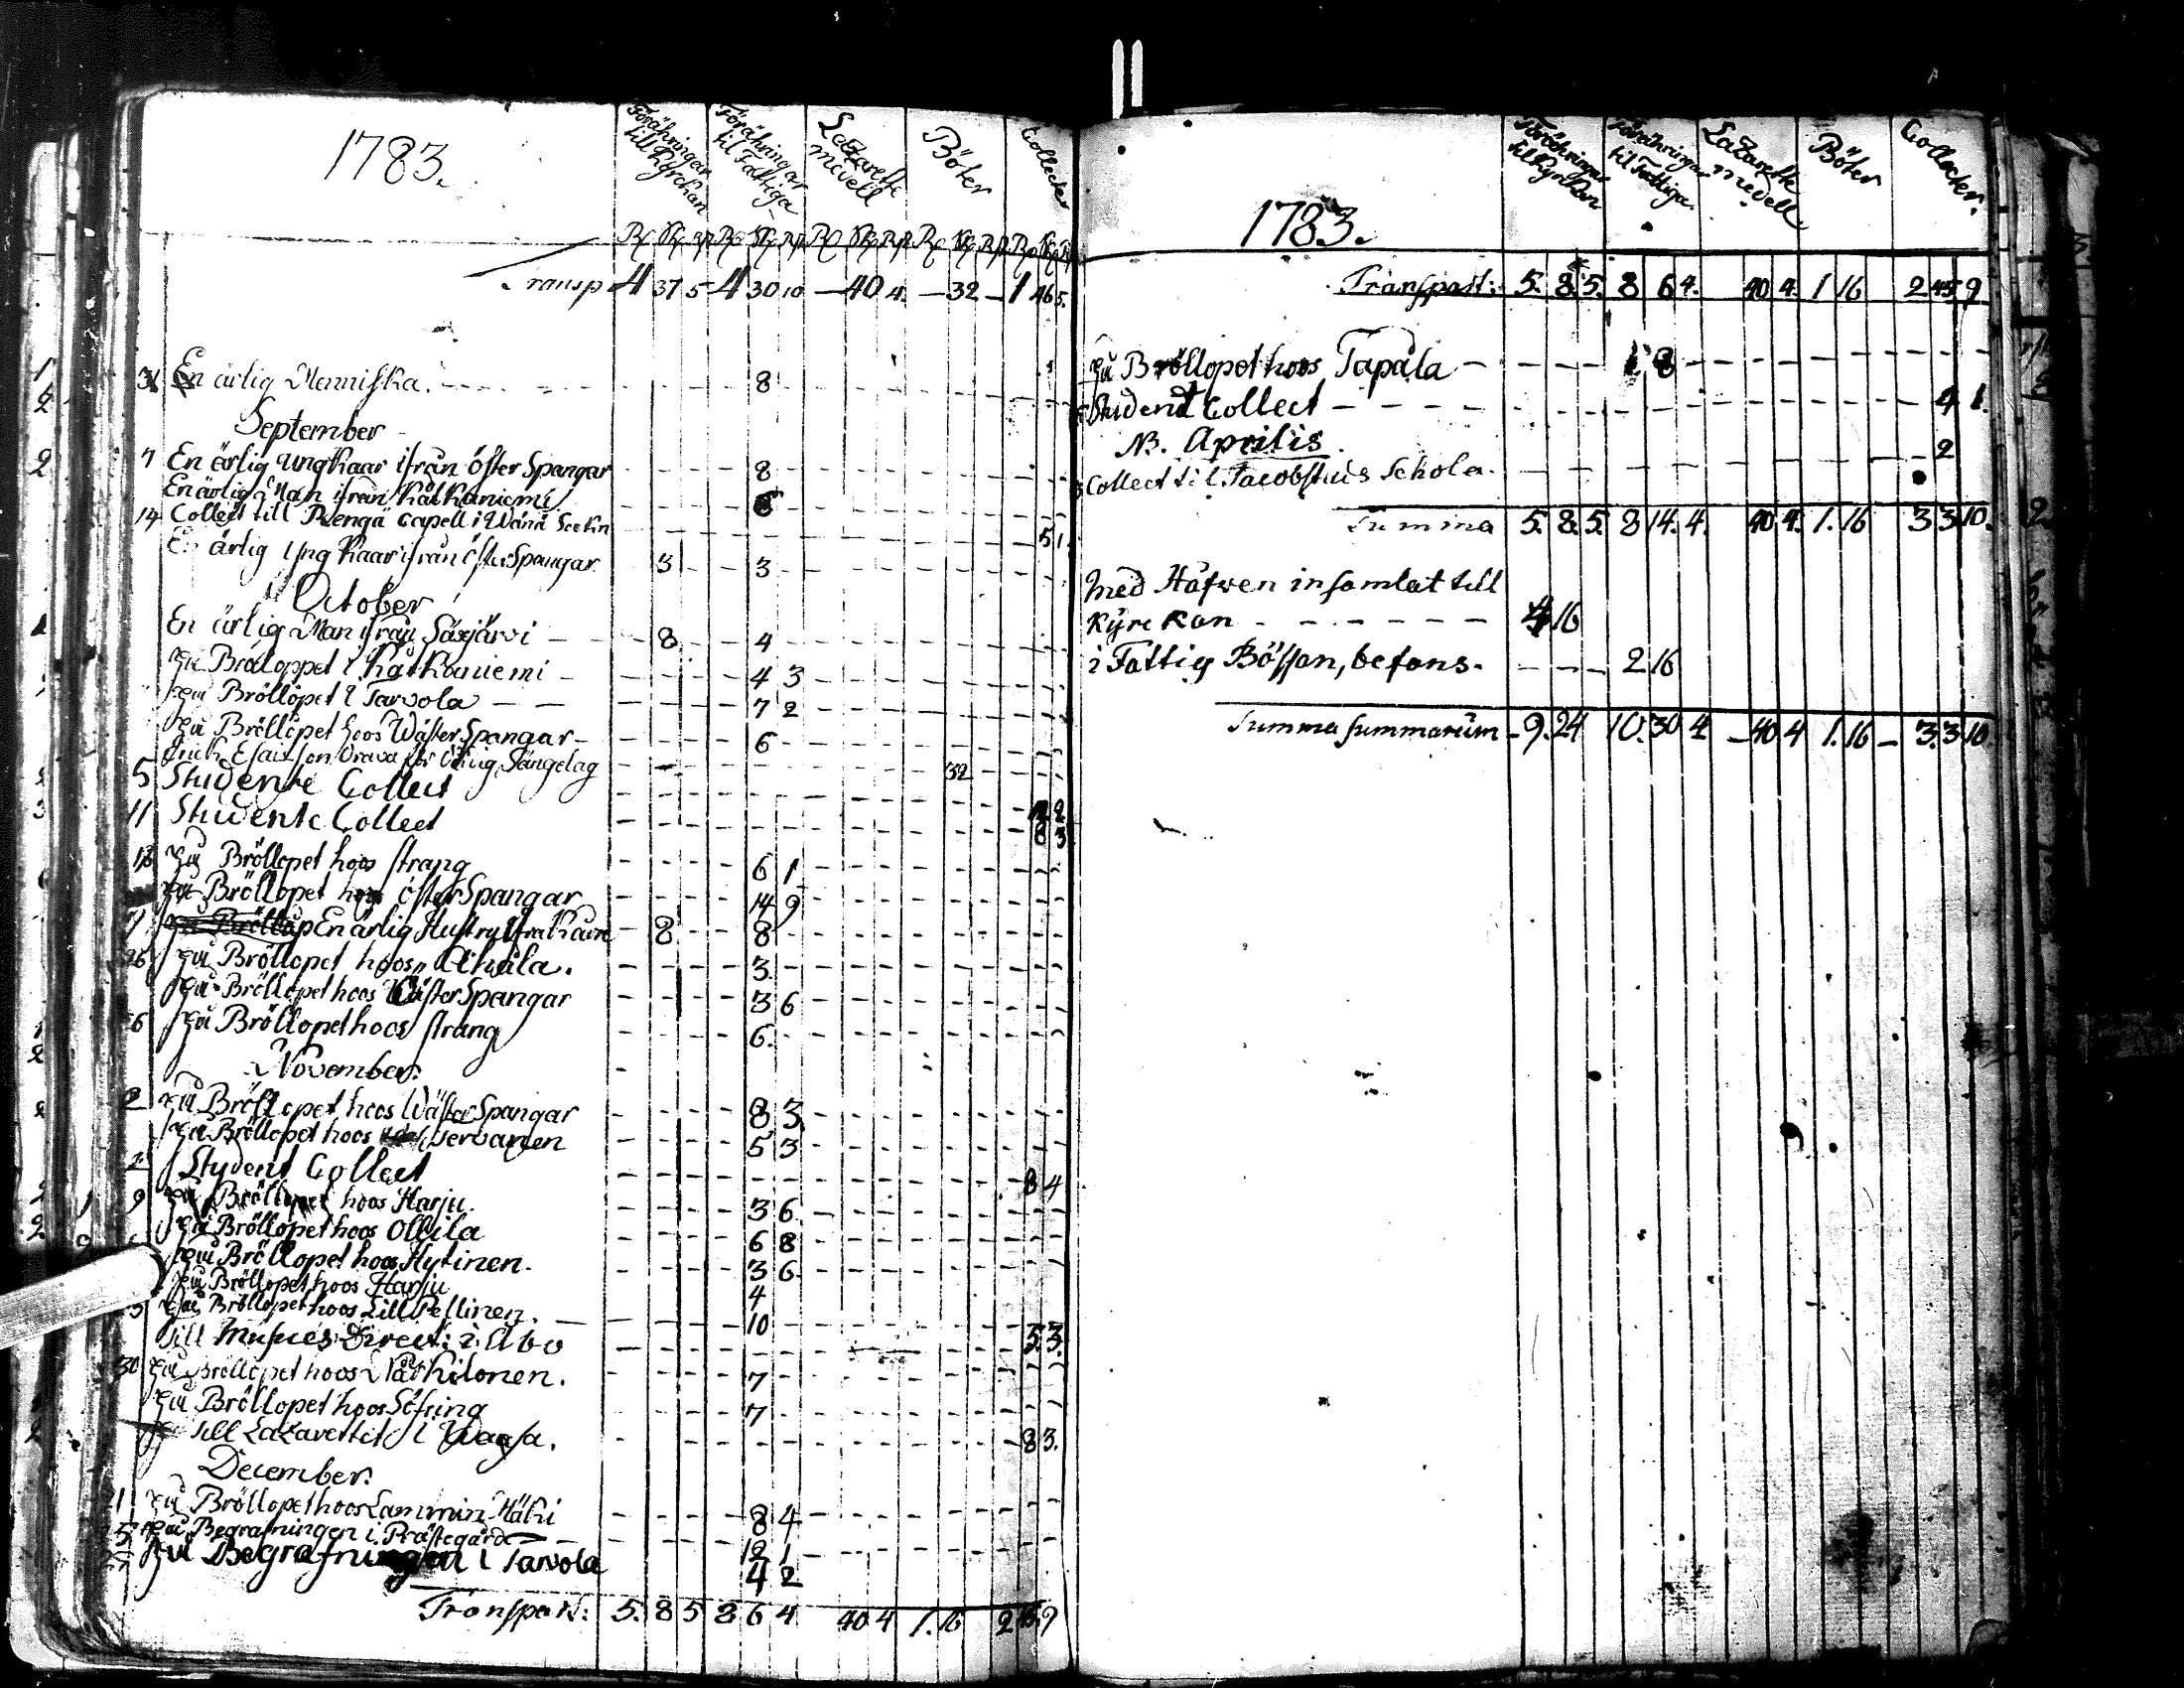 1783.
Förähringar till Kyrckan
Förähringar til Fattiga
Lazarette medell
Böter
Collecter
Transp 4 37 5 4 30 10 — 40 4. — 32 — 1 46 5.
En ärlig Menniska. 8
September
7 En ärlig Ungkaar ifrån öster Spangar 8
En ärlig Man ifrån Kalkaniemi 6
14 Collect till Rengä Capell i Wånå Sockn 5 1.
En ärlig Ung Kaar ifrån öster Spangar 3 3
October
En ärlig Man ifrån Säxjärvi 8 4
på Brölloppet i Kalkaniemi 4 3
på Bröllopet i Tarvola 7 2
på Bröllopet hoos Wäster Spangar 6
Erich Esaisson för Sängelag 32
5 Studente Collect 12 2
11 Studente Collect 8 3
på Bröllopet hoos strang 6 1
på Bröllopet hoos öster Spangar 14 9
En ärlig Hustru 8 8
26 på Bröllopet hoos Ahvala. 3.
på Bröllopet hoos Wäster Spangar 3 6
på Bröllopet hoos strang 6.
November.
2 på Bröllopet hoos Wäster Spangar 8 3
på Bröllopet hoos Servanen 5 3
Student Collect 8 4
9 på Bröllopet hoos Harju. 3 6
på Bröllopet hoos Ollila 6 8
på Bröllopet hoos Hytinen. 3 6.
på Bröllopet hoos Harju 4
på Bröllopet hoos Lill Pellinen. 10
till Musices Direct: i Abo 5 3.
30 på Bröllopet hoos 7
på Bröllopet hoos Söfring 7
till Lazarettet i Wasa. 8 3.
December.
1 på Bröllopet hoos Lammin Mäki 8 4
på Begrafningen i Prästegård 12 1
på Begrafningen i Tarvola 4 2
Transport: 5. 8 5 8 6 4 40 4 1. 16 2 45 9
1783.
Förähringar til Kyrckan
Förähringar til Fattiga.
Lazarette medell
Böter
Collecter.
Transport: 5. 8. 5. 8 6 4. 40 4. 1 16 2 45 9
på Bröllopet hoos Tapala 8
Student Collect 4 1.
NB. Aprilis 2
Collect til Jacobstads Schola.
Summa 5. 8. 5. 8 14. 4. 40 4. 1. 16 3 3 10.
Med Håfwen insamlat till
Kyrckan 4 16
i Fattig Bössan, befans. 2 16
Summa summarum 9. 24 10. 30 4 40 4 1. 16 3. 3 10.